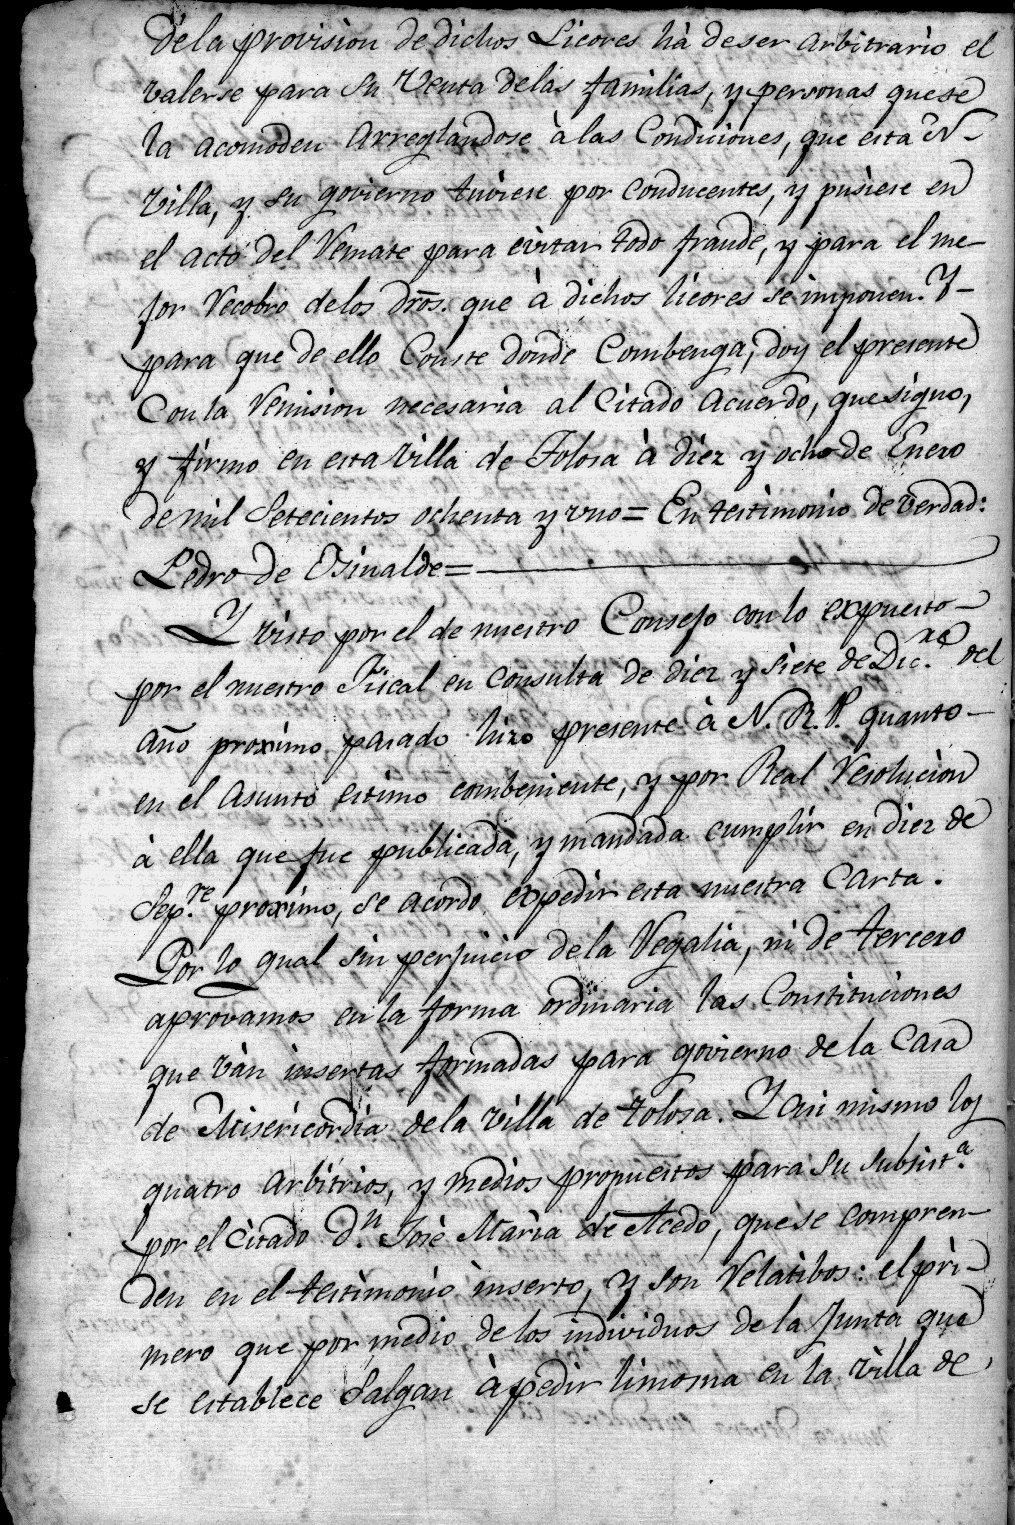 dela provision de dichos Licores hà deser arbitrario el
valerse para su venta delas familias, y personas quese
la acomoden arreglandose à las Condiciones, que esta N.
villa, y su govierno tuviese por conducentes, y pusiese en
el acto del Remate para evitar todo fraude, y para el me-
jor Recobro delos dr̃os. que à dichos licores se imponen. Y-
para que de ello Conste donde Combenga, doy el presente
Con la Remision necesaria al Citado acuerdo, que signo,
y firmo en esta villa de Tolosa à diez y ocho de Enero
de mil Setecientos ochenta y uno = En testimonio de verdad:
Pedro de Osinalde =
Y visto por el de nuestro Consejo con lo expuesto-
por el nuestro Fiscal en consulta de diez y siete de Dic.re del
año proximo pasado hizo presente à N. R. P. quanto-
en el asunto estimo combeniente, y por Real Resolucion
à ella que fue publicada, y mandada cumplir en diez de
Sep.re proximo, se acordo expedir esta nuestra Carta.
Por lo qual sin perjuicio de la Regalia, ni de tercero
aprovamos en la forma ordinaria las Constituciones
que ván insertas formadas para govierno de la Casa
de Misericordia dela villa de tolosa. Y asi mismo los
quatro arbitrios, y medios propuestos para su subsist.a
por el citado D.n Josè Maria de Acedo, que se compren-
den en el testimonio inserto, y son Relatibos: el pri-
mero que por medio de los individuos de la Junta que
se establece salgan à pedir limosna en la villa de